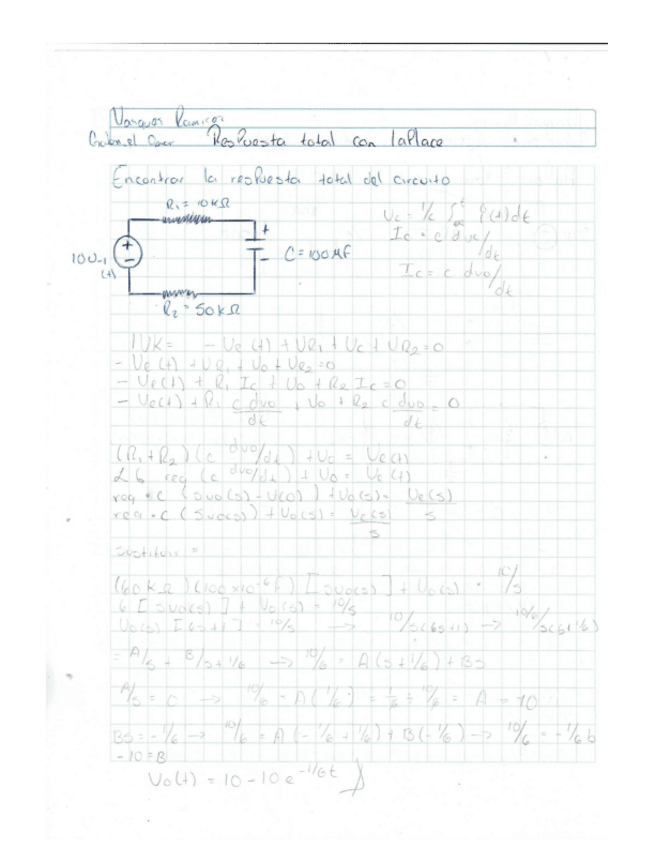 Vazquez Ramirez
Gabriel Omar Respuesta total con laPlace
Encontrar la resPuesta total del circuito
R₁ = 10 KΩ
+
C = 100 MF
-
10U-1
(t)
+
-
R₂ = 50 K Ω
Uc = 1/c ∫ i(t) dt
Ic = c duc/dt
Ic = c duo/dt
lUK = - Ve (t) + UR₁ + Uc + UR₂ = 0
- Ve (t) + UR₁ + Uo + UR₂ = 0
- Ve(t) + R₁ Ic + Uo + R₂ Ic = 0
- Ve(t) + R₁ c duo/dt + Uo + R₂ c duo/dt = 0
(R₁ + R₂) (c duo/dt) + Uo = Ve(t)
req (c duo/dt) + Uo = Ve (t)
req • c (suo(s) - U(o)) + Uo(s) = Ve(s)/s
req • c (suo(s)) + Uo(s) = Ve(s)/s
sustituir =
(60 K Ω) (100 x10⁻⁶ F) [suo(s)] + Uo(s) = 10/s
6 [suo(s)] + Uo(s) = 10/s
Uo(s) [6s+1] = 10/s → 10/s(6s+1) → 10/6/
= A/s + B/s+1/6 → 10/6 = A(s+1/6) + Bs
A/s = 0 → 10/6 = A(1/6) = A = 10
Bs = -1/6 → 10/6 = A (-1/6 + 1/6) + B(-1/6) → 10/6 = -1/6 b
- 10 = B
Vo(t) = 10 - 10 e^-1/6t